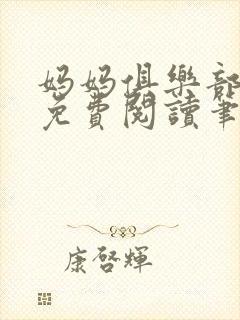 媽媽俱樂部
免費閱讀筆
康啓輝